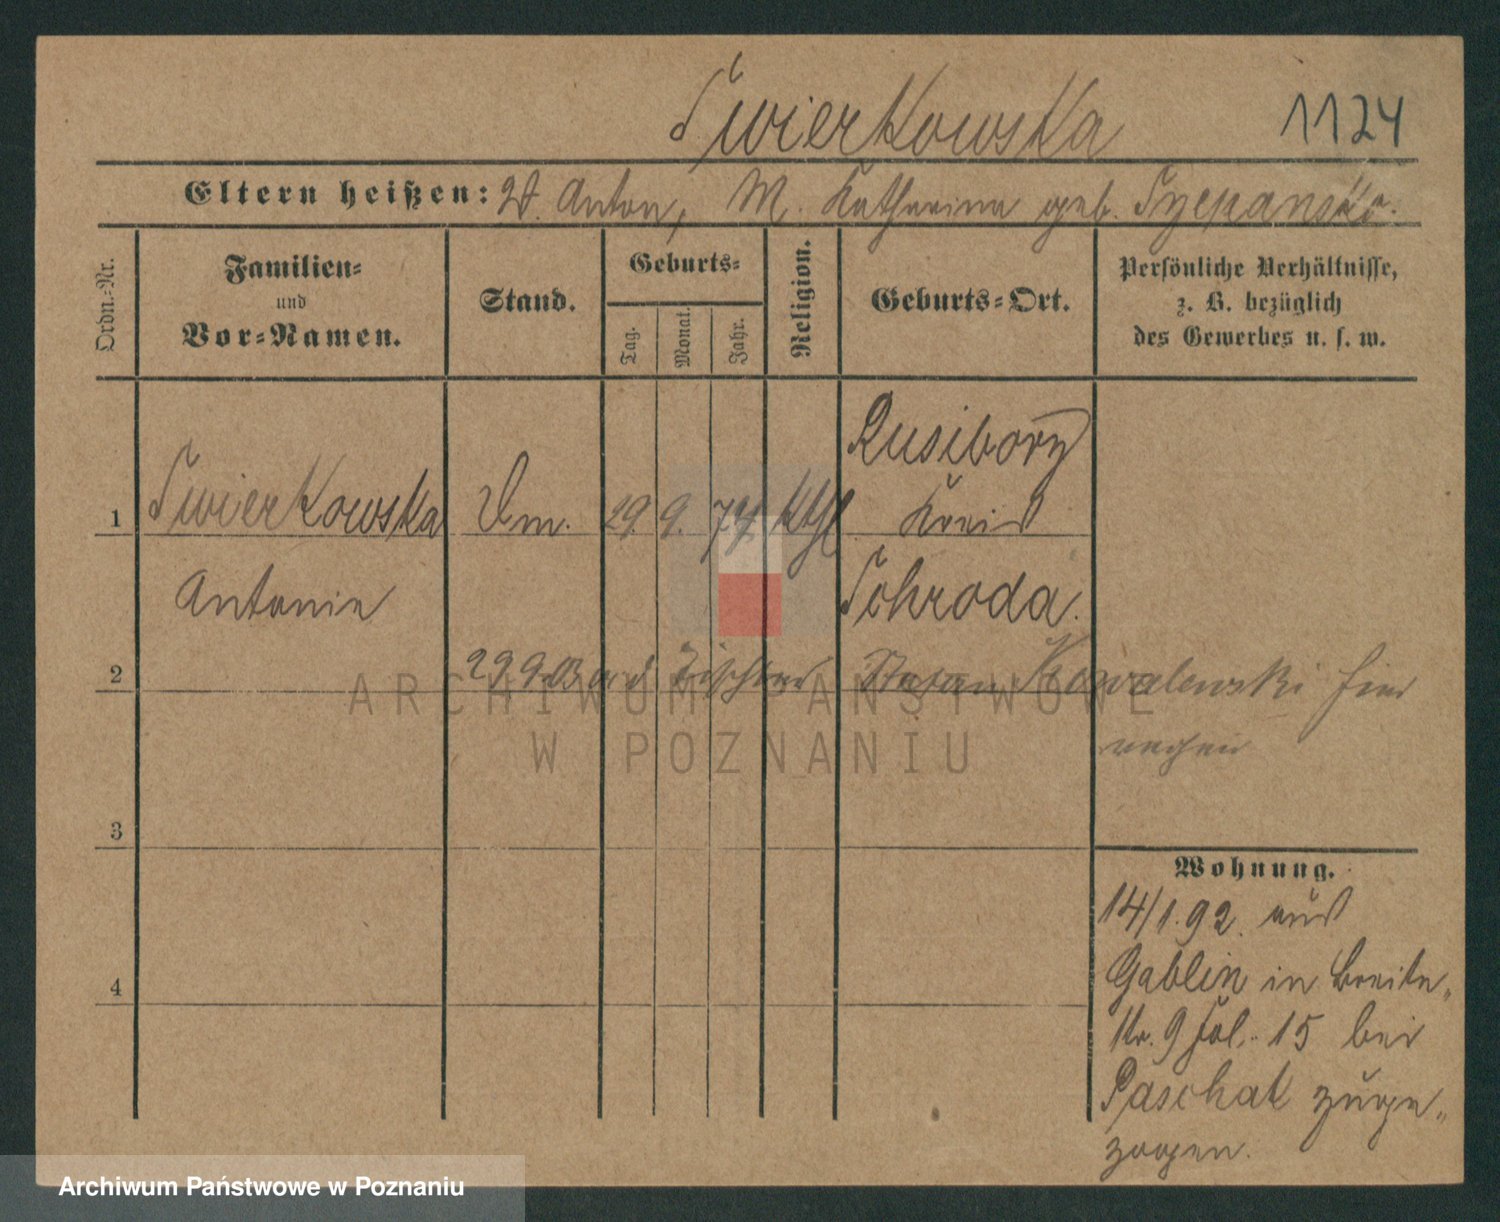 Swierkowska 1124
Eltern heißen: V. Anton, M. Katharina geb. Szczepanska.
Ordn.=Nr.
Familien=
und
Vor=Namen.
Stand.
Geburts=
Tag. Monat. Jahr.
Religion.
Geburts=Ort.
Persönliche Verhältnisse,
z. B. bezüglich
des Gewerbes u. s. w.
1 Swierkowska
Antonie
29. 9. 74. kthl.
Rusibory
Kreis
Schroda.
2
29.9.03 Kowalewski hier
3
Wohnung.
14/1. 92. aus
Gablin in Breite-
str. 9 fol. 15 bei
Paschak zuge-
zogen.
4
ARCHIWUM PAŃSTWOWE
W POZNANIU
Archiwum Państwowe w Poznaniu